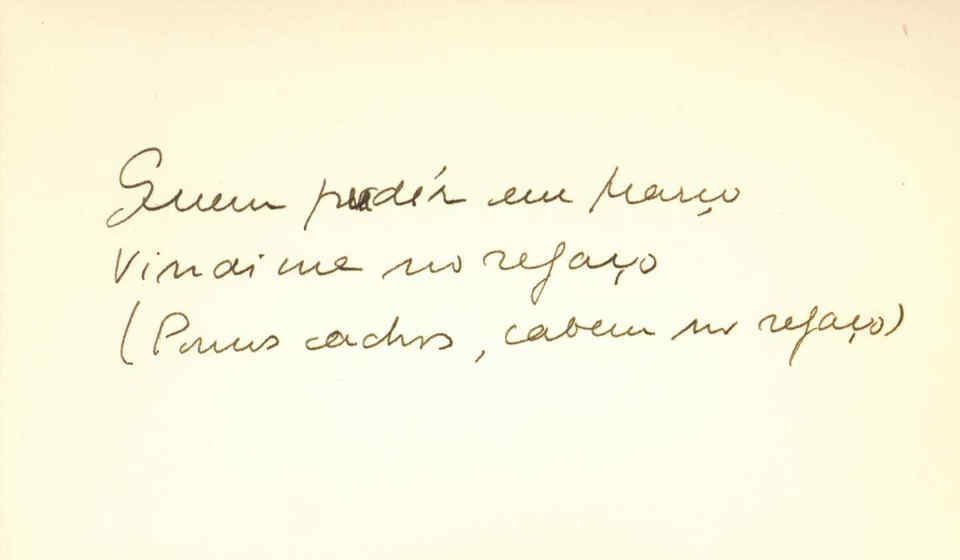 Quem em Março
Vindima no regaço
(Poucos cachos, cabem no regaço)